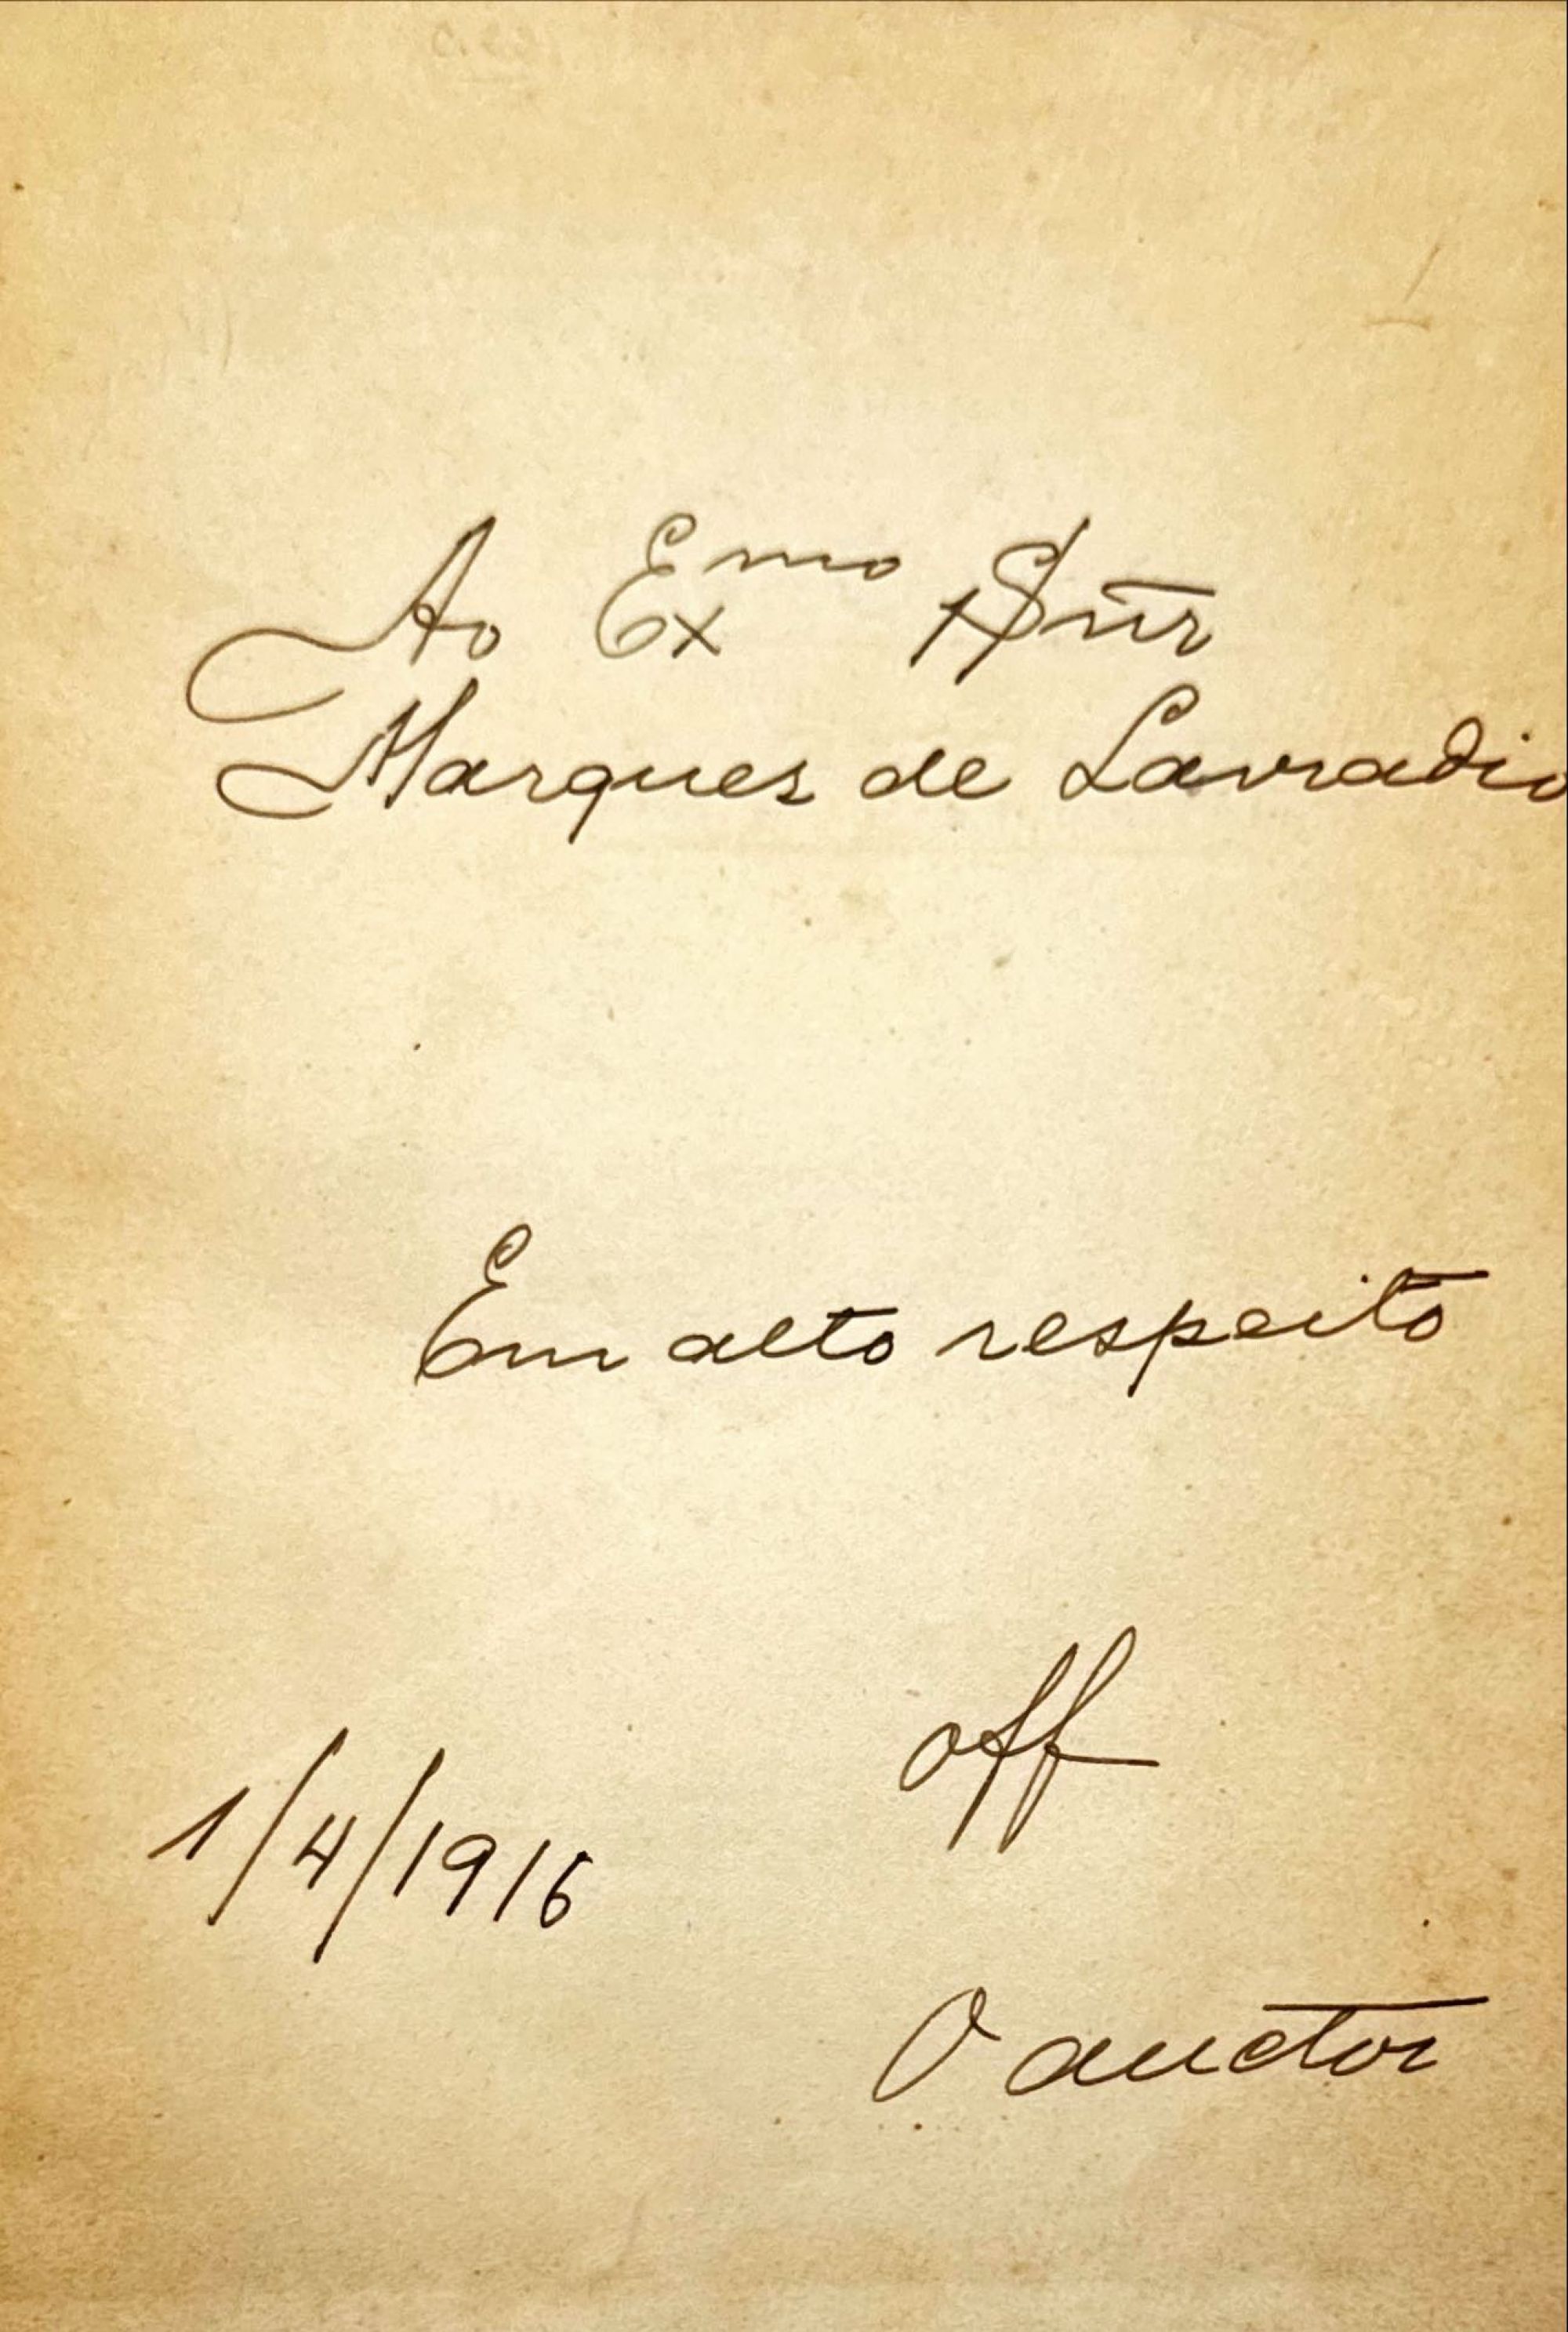 Ao Exmo Snr
Marques de Lavradio
Em alto respeito
off
1/4/1916
O auctor